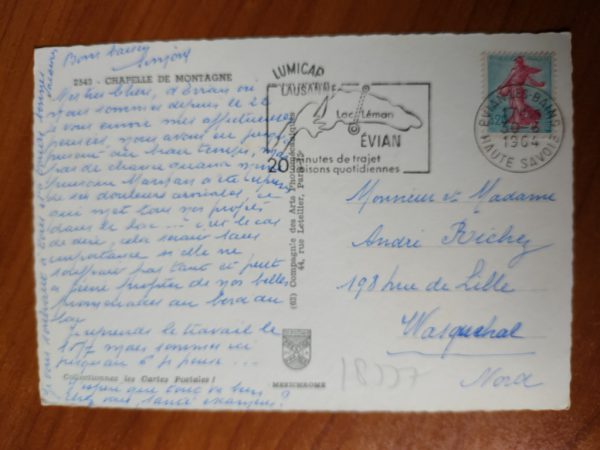 Bons baisers
2345 - CHAPELLE DE MONTAGNE
Mes très chers, d'Evian où
nous sommes depuis le 26
je vous envoie mes affectueuses
pensées, nous avons eu jusqu'à
présent du beau temps, mais
pas de chance quand même
de ses douleurs cervicales, ce
qui met tous nos projets
dans le lac ... c'est le cas
de dire, cela serait sans
importance si elle ne
souffrait pas tant et peut
à peine profiter de nos belles
promenades au bord du
lac
Je reprends le travail le
mais sommes ici
jusqu'au 6 je pense ...
Collectionnez les Cartes Postales !
J'espère que tout va bien
chez vous, santé examens ?
(63) Compagnie des Arts Photomécaniques
44, rue Letellier, Paris-15
MEXICHROME
LUMICAP
LAUSANNE
Lac Léman
ÉVIAN
20 minutes de trajet
liaisons quotidiennes
EVIAN-LES-BAINS
1964
HAUTE SAVOIE
Monsieur et Madame
André Richez
198 rue de Lille
Wasquehal
Nord
18337